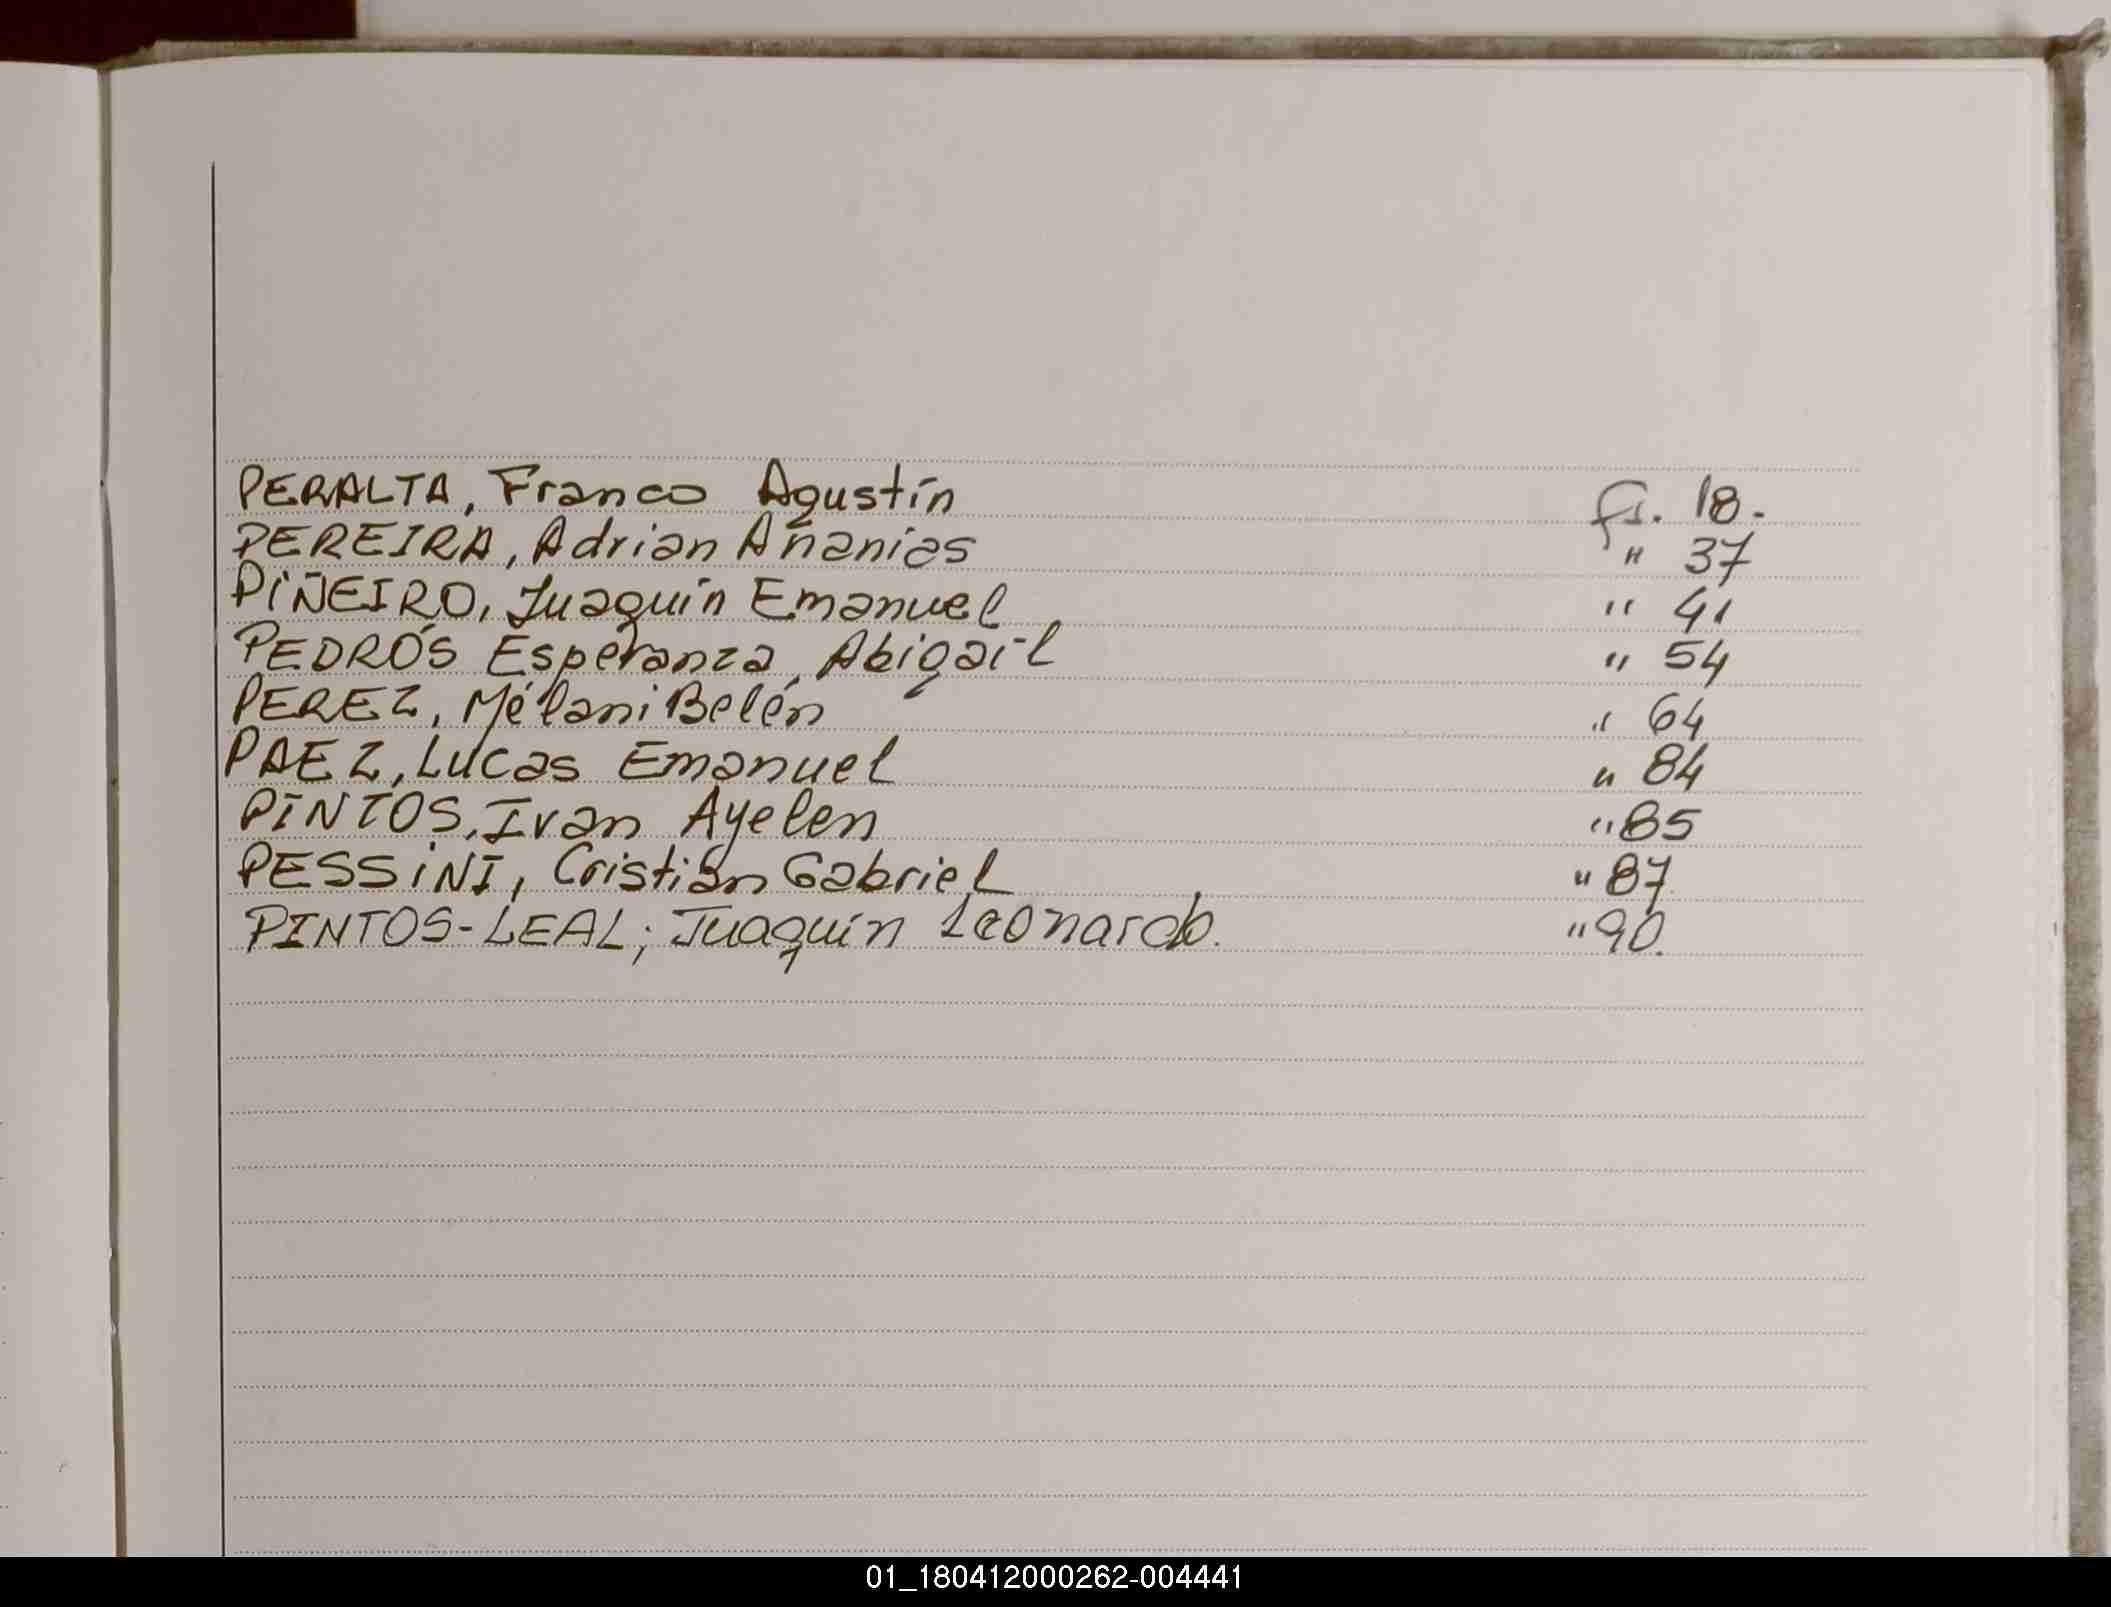 PERALTA, Franco Agustín fs. 18.
PEREIRA, Adrian Ananías " 37
PIÑEIRO, Juaquín Emanuel " 41
PEDRÓS Esperanza, Abigail " 54
PEREZ, Mélani Belén " 64
PAEZ, Lucas Emanuel " 84
PINTOS, Ivan Ayelen " 85
PESSiNI, Cristián Gabriel " 87
PINTOS-LEAL; Juaquín Leonardo. " 90.
01_180412000262-004441